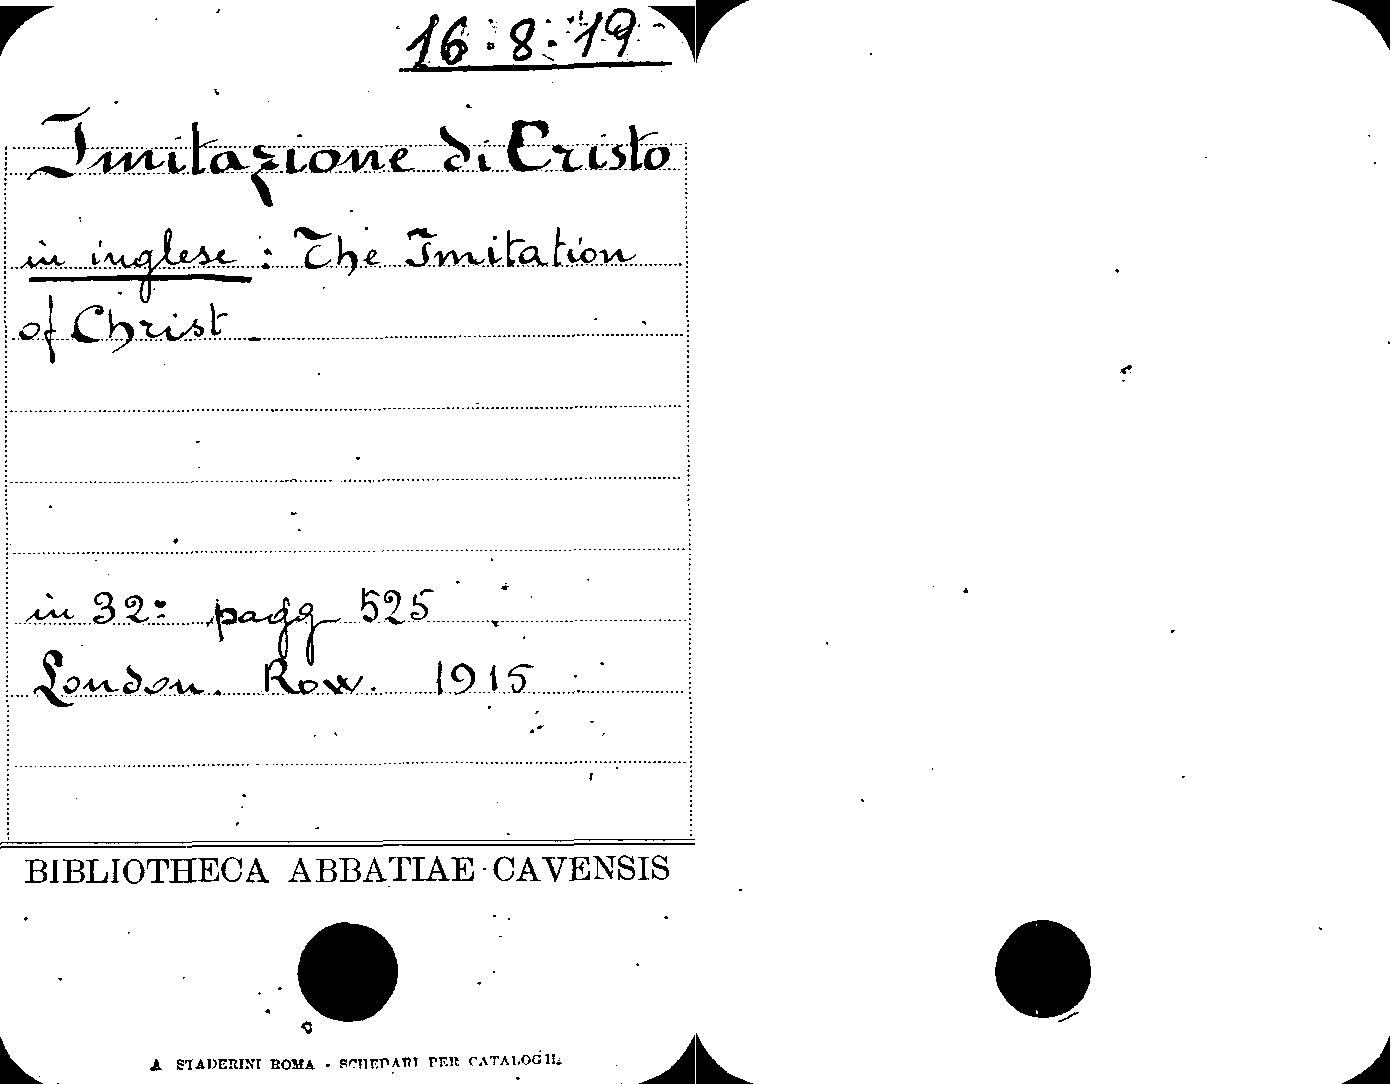 16.8.19
Imitazione di Cristo
in inglese: The Imitation
of Christ.
in 32° pagg 525
London. Row. 1915
BIBLIOTHECA ABBATIAE CAVENSIS
A STADERINI ROMA - SCHEDARI PER CATALOGHI